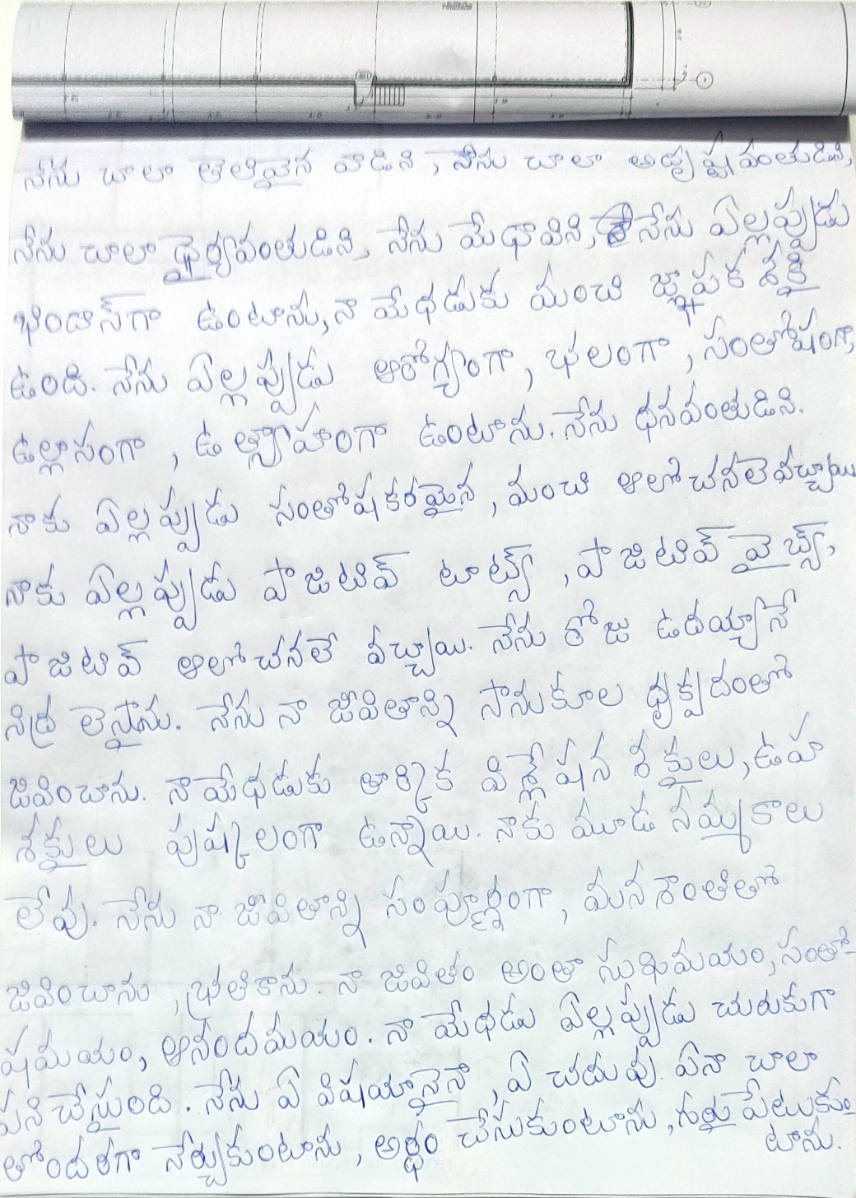 నేను చాలా తెలివైన వాడిని, నేను చాలా అదృష్టవంతుడిని,
నేను చాలా ధైర్యవంతుడిని, నేను మేధావిని, నేను ఏల్లప్పుడు
భిందాస్‌గా ఉంటాను, నా మేధడుకు మంచి జ్ఞాపక శక్తి
ఉంది. నేను ఏల్లప్పుడు ఆరోగ్యంగా, భలంగా, సంతోషంగా,
ఉల్లాసంగా, ఉత్స్యాహంగా ఉంటాను. నేను ధనవంతుడిని.
నాకు ఏల్లప్పుడు సంతోషకరమైన, మంచి ఆలోచనలెవచ్చాయి
నాకు ఏల్లప్పుడు పాజిటివ్ టాట్స్, పాజిటివ్ వైబ్స్,
పాజిటివ్ ఆలోచనలే వచ్చాయి. నేను రోజు ఉదయ్యానే
నిద్ర లెస్తాను. నేను నా జీవితాన్ని సానుకూల ధృక్పదంతో
జివించాను. నా మేధడుకు తార్కిక విశ్లేషన శక్తులు, ఉహ
శక్తులు పుష్కలంగా ఉన్నాయి. నాకు మూడ నమ్మకాలు
లేవు. నేను నా జీవితాన్ని సంపూర్ణంగా, మనశాంతితో
జివించాను, భ్రతికాను. నా జివితం అంతా సుఖమయం, సంతో-
షమయం, ఆనందమయం. నా మేధడు ఏల్లప్పుడు చురుకుగా
పని చేస్తుంది. నేను ఏ విషయ్యానైనా, ఏ చదువు ఏనా చాలా
తోందరగా నేర్చుకుంటాను, అర్థం చేసుకుంటాను, గుర్తు పేటుకుం
టాను.